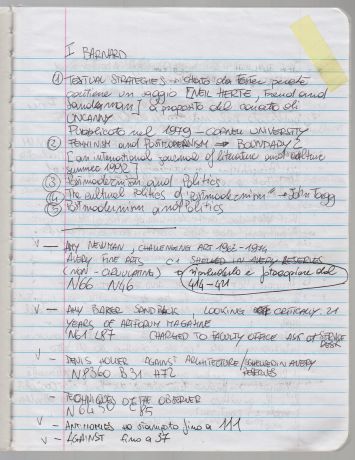 I BARNARD
① TEXTUAL STRATEGIES - citato da Foster perché
contiene un saggio [NEIL HERTZ, Freud and
Sandman] a proposito del concetto di
UNCANNY
Pubblicato nel 1979 - CORNELL UNIVERSITY
② FEMINISM and POSTMODERNISM → BOUNDARY 2
[an international journal of literature and culture
summer 1992]
③ Postmodernism and Politics
④ The cultural Politics of "Postmodernism" → John Tagg
⑤ Postmodernism and Politics
V — AMY NEWMAN, CHALLENGING ART 1962-1974
AVERY FINE ARTS SHELVED IN AVERY RESERVES
(NON-CIRCULATING) → fotocopiare dal
N66 N46 414-421
V — AMY BAKER SANDBACK, LOOKING CRITICALY 21
YEARS OF ARTFORUM MAGAZINE
N61 L87 CHARGED TO FACULTY OFFICE ASK at SERVICE
DESK
V — DENIS HOLLIER AGAINST ARCHITECTURE/SHELVED IN AVERY
N8360 B31 H72 RESERVES
V — TECHNIQUES OF THE OBSERVER
N6430 C85
V — ANTINOMIES ho stampato fino a 111
V — AGAINST fino a 37